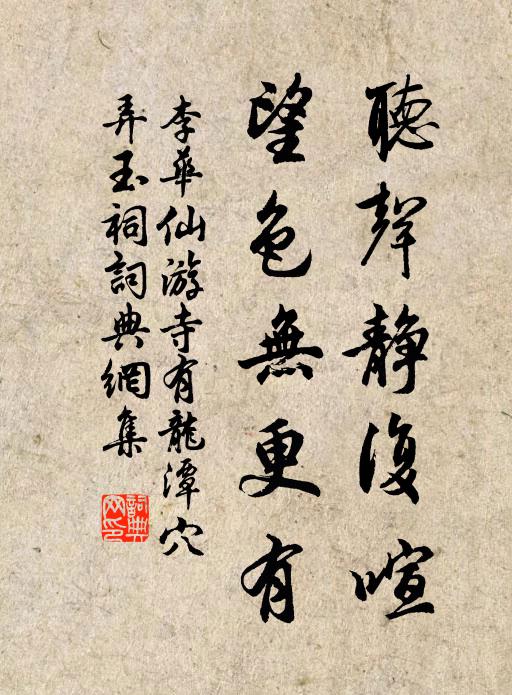 聽聲静復喧
望色無更有
李華仙游寺有龍潭穴
弄玉祠詞典網集
詞典網印